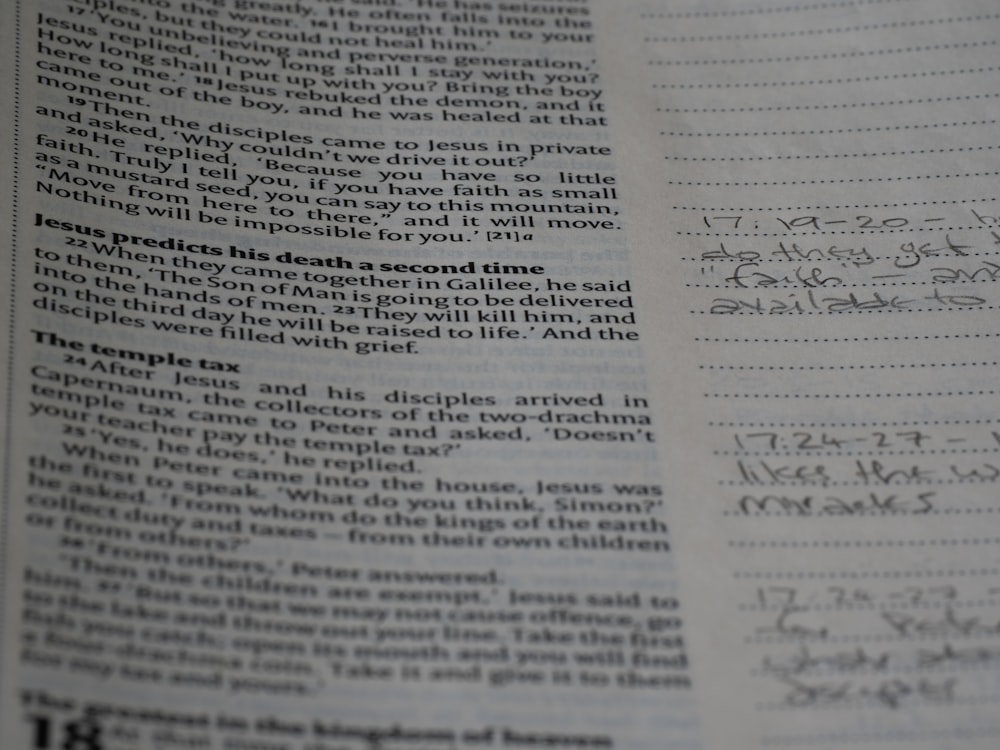 greatly. He often falls into the
the water. 16 I brought him to your
but they could not heal him.'
17 'You unbelieving and perverse generation,'
Jesus replied, 'how long shall I stay with you?
How long shall I put up with you? Bring the boy
here to me.' 18 Jesus rebuked the demon, and it
came out of the boy, and he was healed at that
moment.
19 Then the disciples came to Jesus in private
and asked, 'Why couldn't we drive it out?'
20 He replied, 'Because you have so little
faith. Truly I tell you, if you have faith as small
as a mustard seed, you can say to this mountain,
"Move from here to there," and it will move.
Nothing will be impossible for you.' [21] a
Jesus predicts his death a second time
22 When they came together in Galilee, he said
to them, 'The Son of Man is going to be delivered
into the hands of men. 23 They will kill him, and
on the third day he will be raised to life.' And the
disciples were filled with grief.
The temple tax
24 After Jesus and his disciples arrived in
Capernaum, the collectors of the two-drachma
temple tax came to Peter and asked, 'Doesn't
your teacher pay the temple tax?'
25 'Yes, he does,' he replied.
When Peter came into the house, Jesus was
the first to speak. 'What do you think, Simon?'
he asked. 'From whom do the kings of the earth
collect duty and taxes – from their own children
or from others?'
26 'From others,' Peter answered.
'Then the children are exempt,' Jesus said to
him. 27 'But so that we may not cause offence, go
to the lake and throw out your line. Take the first
fish you catch; open its mouth and you will find
a four-drachma coin. Take it and give it to them
for my tax and yours.'
The greatest in the kingdom of heaven
18
17:19-20 -
do they get
"faith" - and
available to
17:24-27 -
likes the
miracles
17:24-27 -